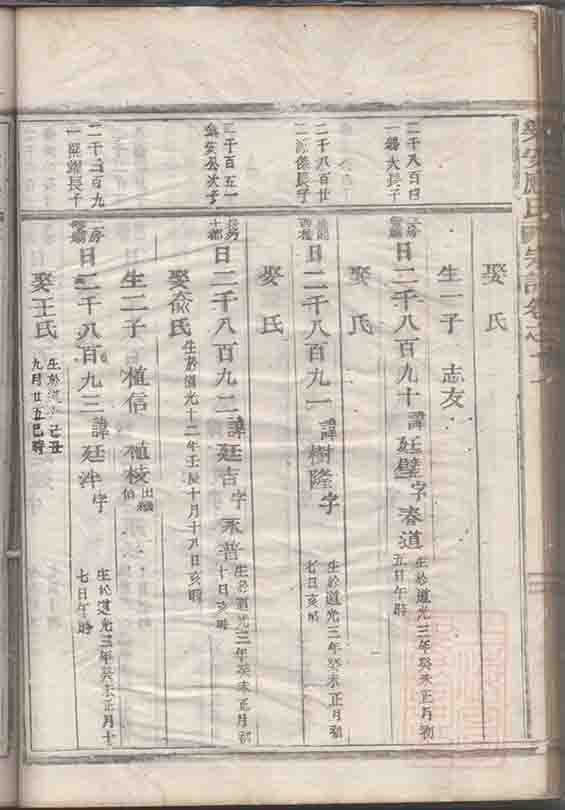 應氏
娶氏
生一子 志友
二千八百四
一 大長子
日二千八百九十諱廷璧字春道
生於道光三年癸未正月初
五日午時
娶氏
二千八百廿
二 長子
日二千八百九一諱樹隆字
生於道光三年癸未正月初
七日亥時
娶氏
二千百五一
公次子
日二千八百九二諱廷吉字永普
生於道光三年癸未正月初
十日亥時
娶俞氏
生於道光十二年壬辰十月十八日亥時
生二子 植信 植棱 出繼
二千二百九
一 長子
日二千八百九三諱廷泮字
生於道光三年癸未正月十
七日午時
娶王氏
生於道光己丑
九月廿五巳時